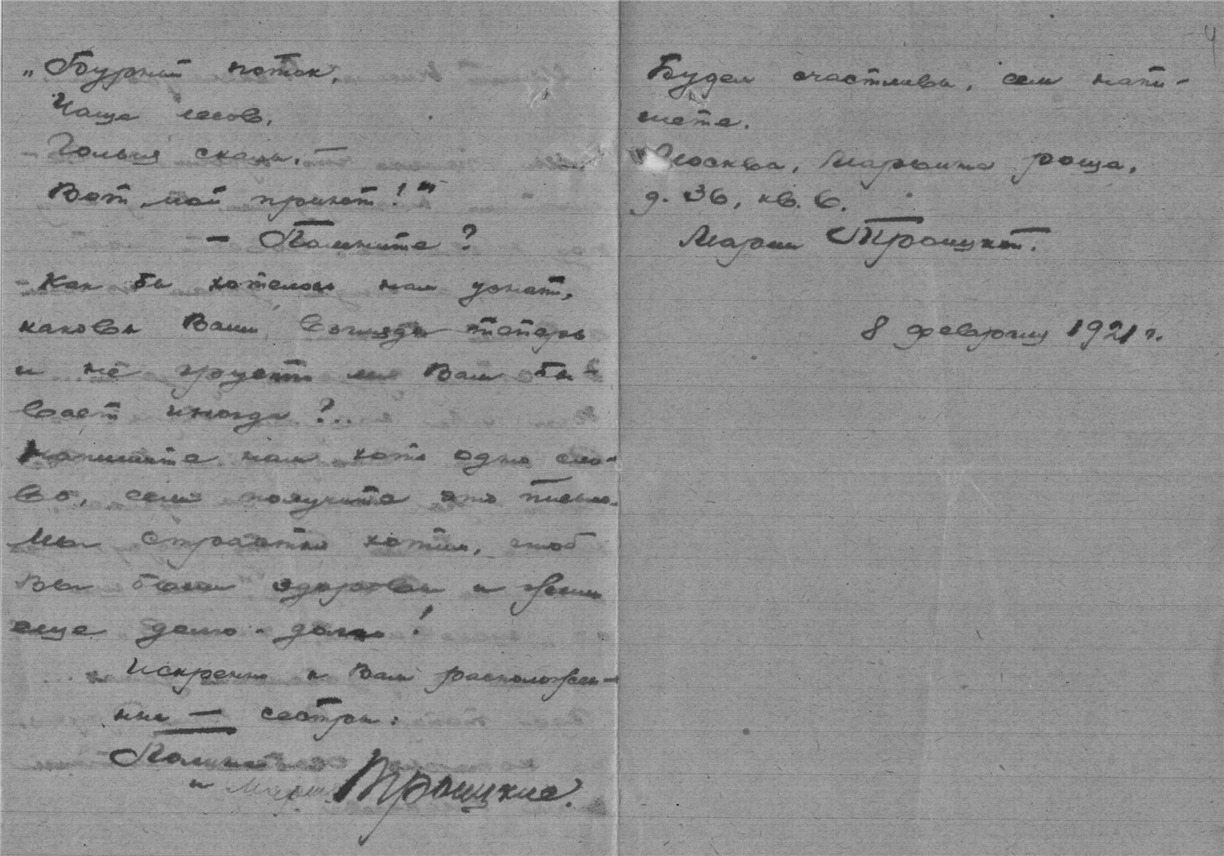 „Бурный поток,
Чаща лесов,
Голые скалы, –
Вот мой приют!"
– Помните?
Как бы хотелось нам узнать,
каковы Ваши взгляды теперь
и не грустно ли Вам бы-
вает иногда?..
Напишите нам хоть одно сло-
во, если получите это письмо.
Мы страстно хотим, чтоб
Вы были здоровы и жили
еще долго-долго!
Искренно к Вам расположен-
ные – сестры:
и Мария Троицкие.
Будем счастливы, если напи-
шете.
Москва, Марьина роща,
д. 36, кв. 6.
Марии Троицкой.
8 февраля 1921 г.
4